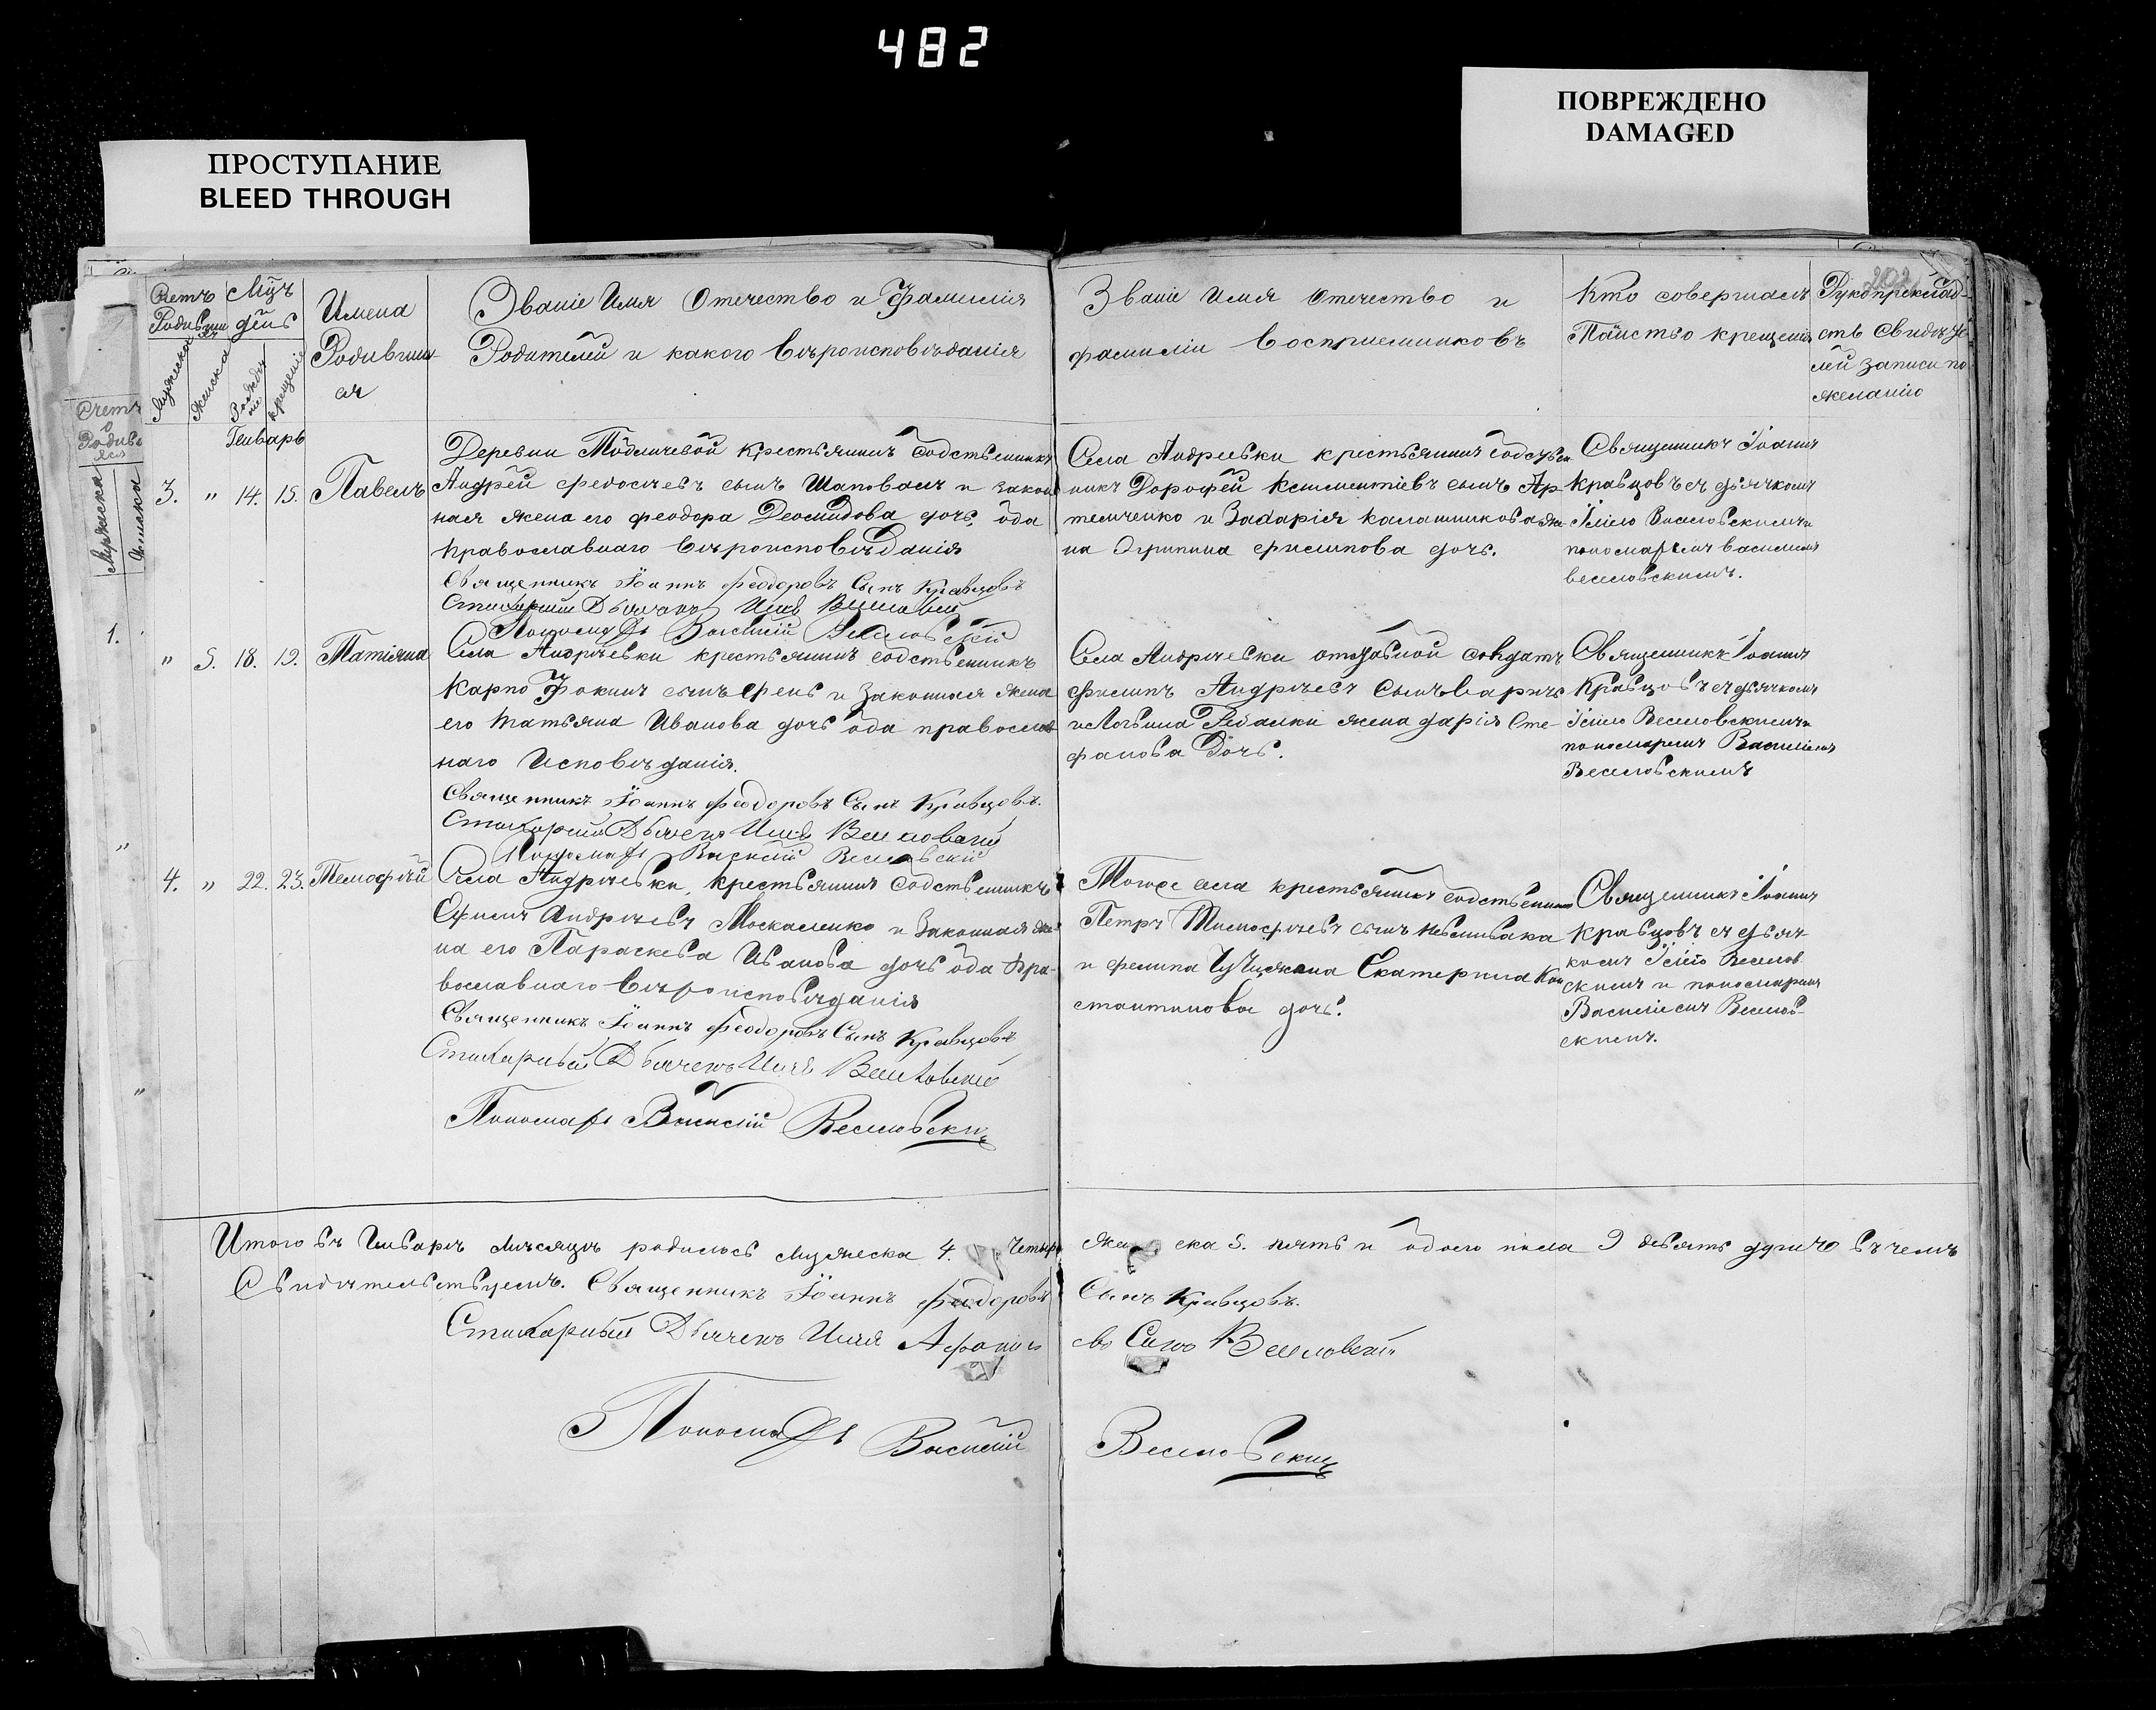 482
ПОВРЕЖДЕНО
DAMAGED
ПРОСТУПАНИЕ
BLEED THROUGH
Счетъ
Родивши
Мцъ
дей
Мужеска
Женска
крещенія
Генварь
Имена
Родивши
ся
Званіе Имя Отечество и Фамилія
Родителей и какого вѣроисповѣданія
Званіе Имя Отечество и
фамиліи воспріемниковъ
Кто совершалъ
Таинство крещенія
Рукоприклад-
ств свидѣте
лей записи по
желанію
202
3. " 14. 15. Павелъ
Деревни крестьянинъ собственникъ
Андрей сынъ Шаповалъ и закон
ная жена его Феодора Деомидова дочь, оба
православнаго вѣроисповѣданія
Священникъ Іоаннъ Феодоровъ Сынъ Кравцовъ
Стихарный Дьячекъ Илія Веселовскій
Пономарь Василій Веселовскій
Села Андреевки крестьянинъ собствен
никъ Дорофей Климентіевъ сынъ Ар-
темченко и Захарія Калашникова же
на Филипова дочь.
Священникъ Іоаннъ
Кравцовъ съ дьячкомъ
Іліею Веселовскимъ и
пономаремъ Василіемъ
Веселовскимъ.
" 5. 18. 19. Татіяна
Села Андрѣевки крестьянинъ собственникъ
Карпо Фокинъ сынъ и законная жена
его Татьяна Иванова дочь оба православ
наго Исповѣданія.
Священникъ Іоаннъ Феодоровъ Сынъ Кравцовъ.
Стихарный Дьячекъ Илія Веселовскій
Пономарь Василій Веселовскій
Села Андрѣевки отставной солдатъ
Филипъ Андрѣевъ Сынъ
и жена Дарія Сте-
фанова Дочь.
Священникъ Іоаннъ
Кравцовъ съ дьячкомъ
Іліею Веселовскимъ и
пономаремъ Василіемъ
Веселовскимъ
4. " 22. 23. Темофѣй
Села Андрѣевки, крестьянинъ собственникъ
Ефимъ Андрѣевъ Москаленко и Законная же
на его Параскева Иванова дочь оба пра-
вославнаго вѣроисповѣданія
Священникъ Іоаннъ Феодоровъ Сынъ Кравцовъ
Стихарный Дьячекъ Илія Веселовскій
Пономарь Василій Веселовскій
Тогоже села крестьянинъ собственникъ
Петръ Тимофѣевъ сынъ
и жена Екатерина Кон
стантинова дочь.
Священникъ Іоаннъ
Кравцовъ съ дьяч-
комъ Іліею Веселов
скимъ и пономаремъ
Василіемъ Веселов-
скимъ.
Итого въ Генварѣ мѣсяцѣ родилось мужеска 4. Четыре
ска 5. пять и обоего пола 9 девять душъ въ чемъ
Свидѣтельствуемъ. Священникъ Іоаннъ Феодоровъ
Сынъ Кравцовъ.
Стихарный Дьячекъ Илія Афанась
евъ Сынъ Веселовскій
Пономарь Василій
Веселовскій